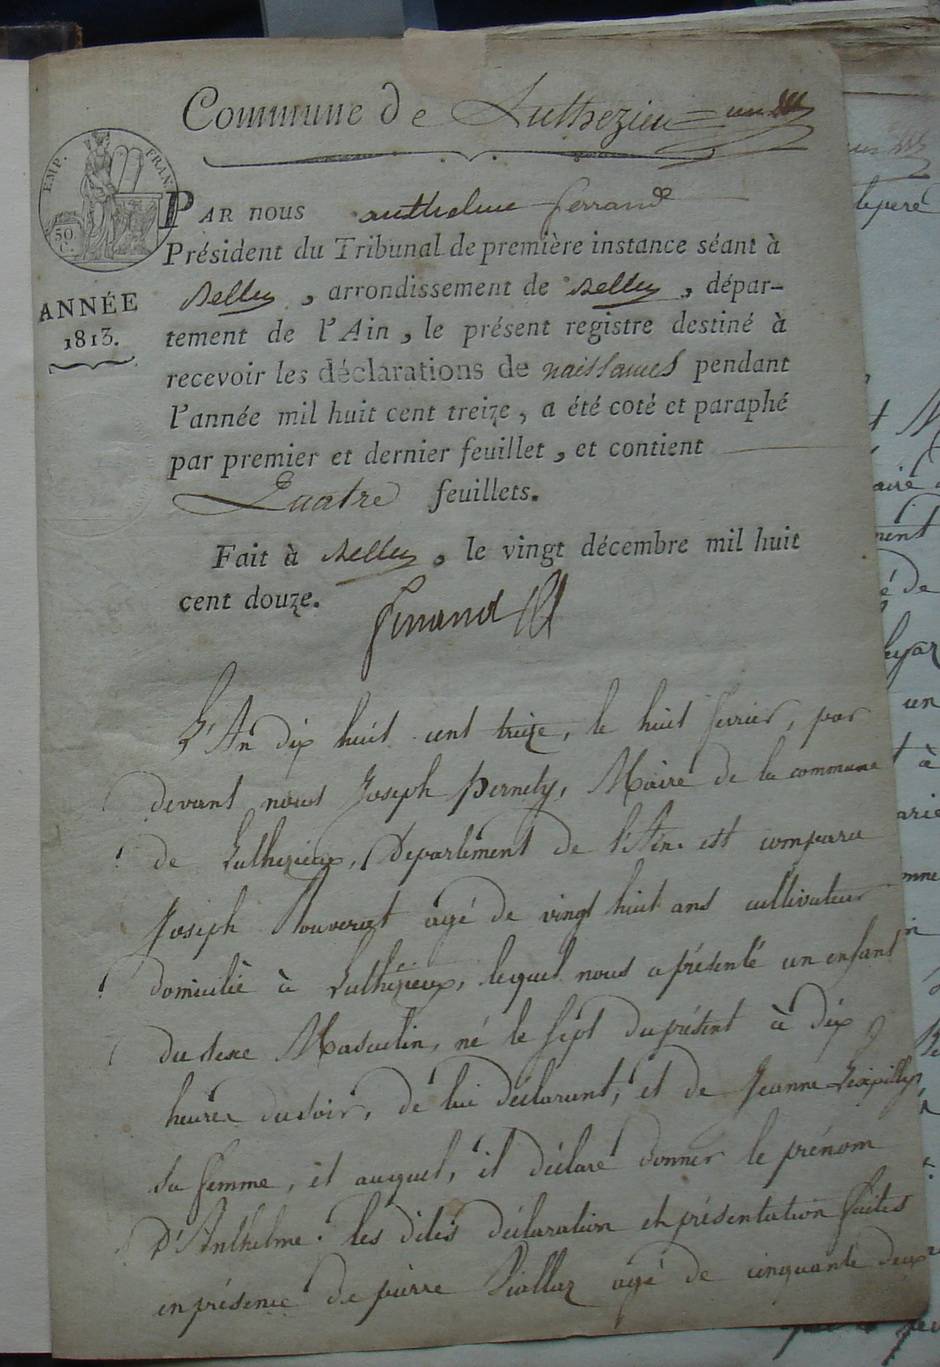 Commune de Luthezieu
EMP. FRAN.
50 C.
ANNÉE
1813.
PAR nous anthelme ferrand
Président du Tribunal de première instance séant à
Belley, arrondissement de Belley, dépar-
tement de l'Ain, le présent registre destiné à
recevoir les déclarations de naissances pendant
l'année mil huit cent treize, a été coté et paraphé
par premier et dernier feuillet, et contient
Quatre feuillets.
Fait à Belley, le vingt décembre mil huit
cent douze.
ferrand
L'An dix huit cent treize, le huit fevrier, par
devant nous Joseph pernety, Maire de la commune
de Luthezieux, Departement de l'Ain est comparu
Joseph agé de vingt huit ans cultivateur
domicilié à Luthézieux, lequel nous a présenté un enfant
du sexe Masculin, né le sept du présent à dix
heures du soir, de lui déclarant, et de Jeanne
sa femme, et auquel, il déclaré donner le prénom
D'Anthelme. les dites déclaration et présentation faites
en présence de pierre agé de cinquante deux